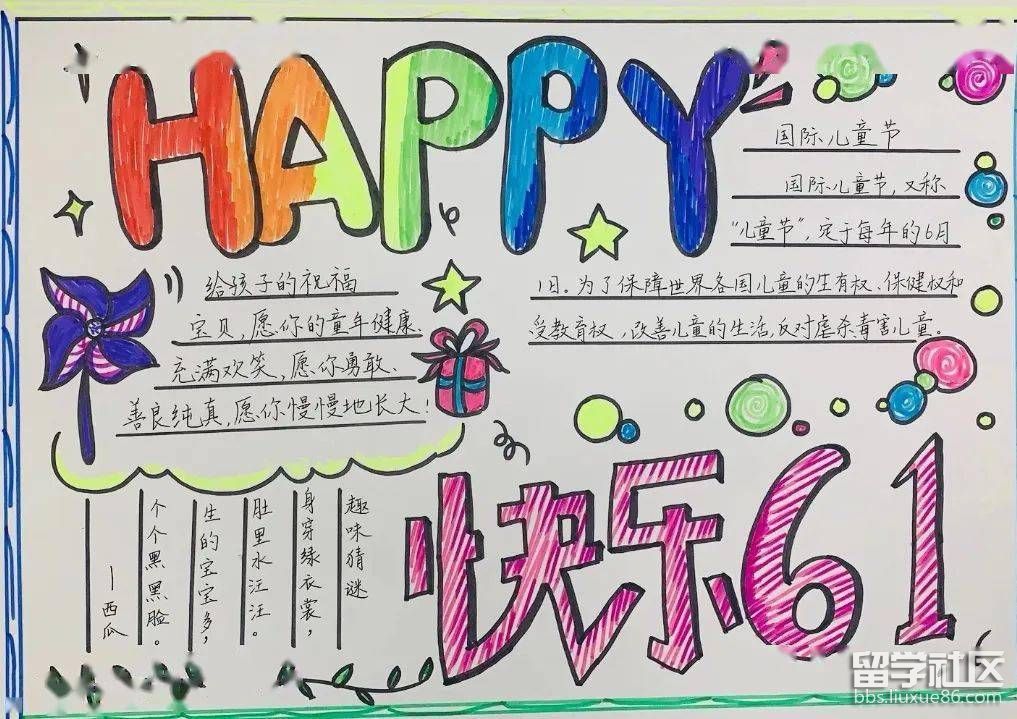 HAPPY
国际儿童节
国际儿童节,又称
"儿童节",定于每年的6月
1日。为了保障世界各国儿童的生有权、保健权和
受教育权,改善儿童的生活,反对虐杀毒害儿童。
给孩子的祝福
宝贝,愿你的童年健康、
充满欢笑,愿你勇敢、
善良纯真,愿你慢慢地长大!
趣味猜谜
身穿绿衣裳,
肚里水汪汪。
生的宝宝多,
个个黑黑脸。
—西瓜
快乐61
留学社区
bbs.liuxue86.com